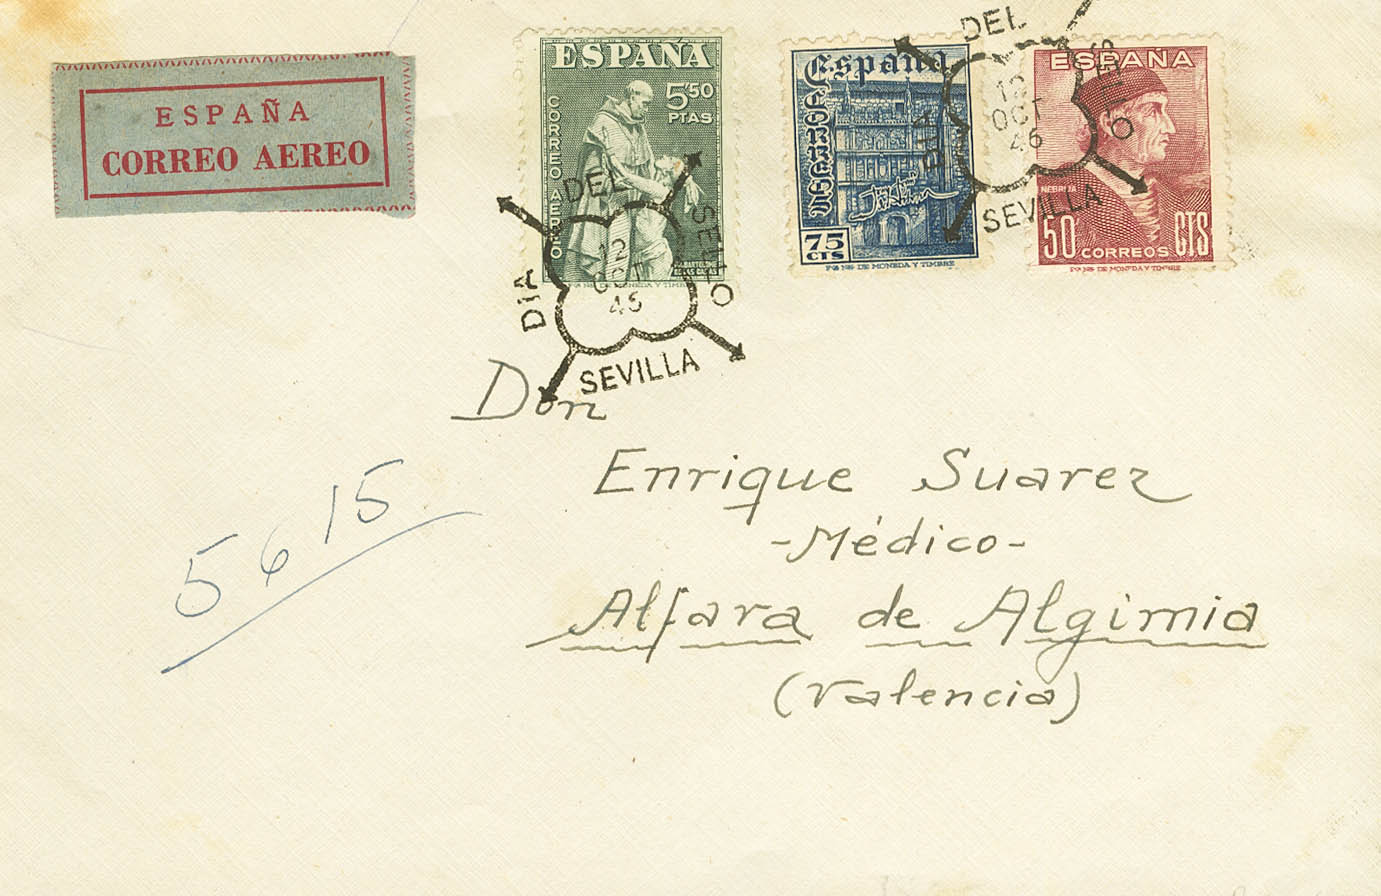 ESPAÑA
CORREO AEREO
ESPAÑA
5'50
PTAS
CORREO AEREO
Fª Nal DE MONEDA Y TIMBRE
DIA DEL SELLO
12
OCT
46
SEVILLA
España
Correos
75
CTS
Fª Nal DE MONEDA Y TIMBRE
ESPAÑA
NEBRIJA
50 CORREOS CTS
Fª Nal DE MONEDA Y TIMBRE
DIA DEL SELLO
12
OCT
46
SEVILLA
Don
Enrique Suarez
-Médico-
Alfara de Algimia
(Valencia)
5615